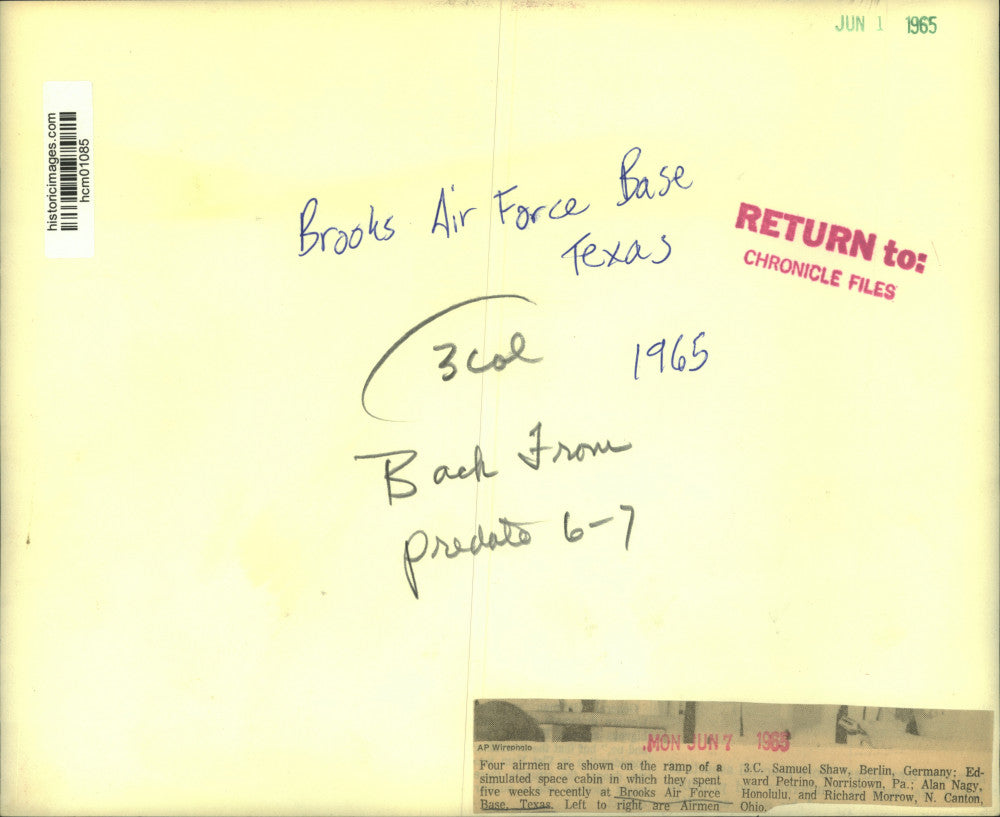 JUN 1 1965
historicimages.com
hcm01085
Brooks Air Force Base
Texas
RETURN to:
CHRONICLE FILES
3 col
1965
Back From
predate 6-7
MON JUN 7 1965
AP Wirephoto
Four airmen are shown on the ramp of a
simulated space cabin in which they spent
five weeks recently at Brooks Air Force
Base, Texas. Left to right are Airmen
3.C. Samuel Shaw, Berlin, Germany; Ed-
ward Petrino, Norristown, Pa.; Alan Nagy,
Honolulu, and Richard Morrow, N. Canton,
Ohio.